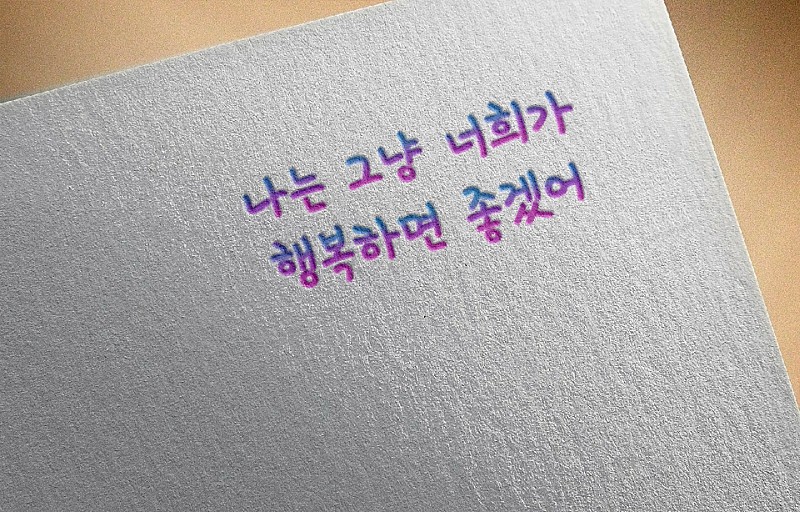 나는 그냥 너희가
행복하면 좋겠어